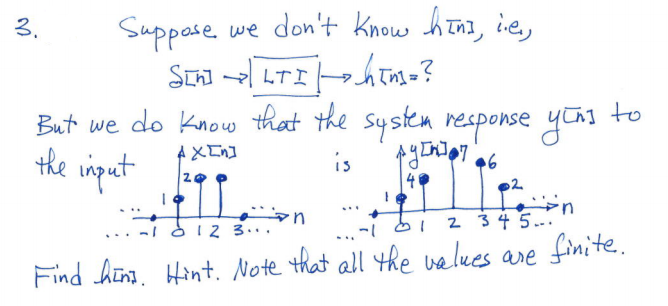 3. Suppose we don't know h[n], i.e.,
δ[n] → LTI → h[n]=?
But we do know that the system response y[n] to
the input x[n] is y[n]
7
6
2 4 2
1 1
... ... n ... ... n
... -1 0 1 2 3... ... -1 0 1 2 3 4 5...
Find h[n]. Hint. Note that all the values are finite.